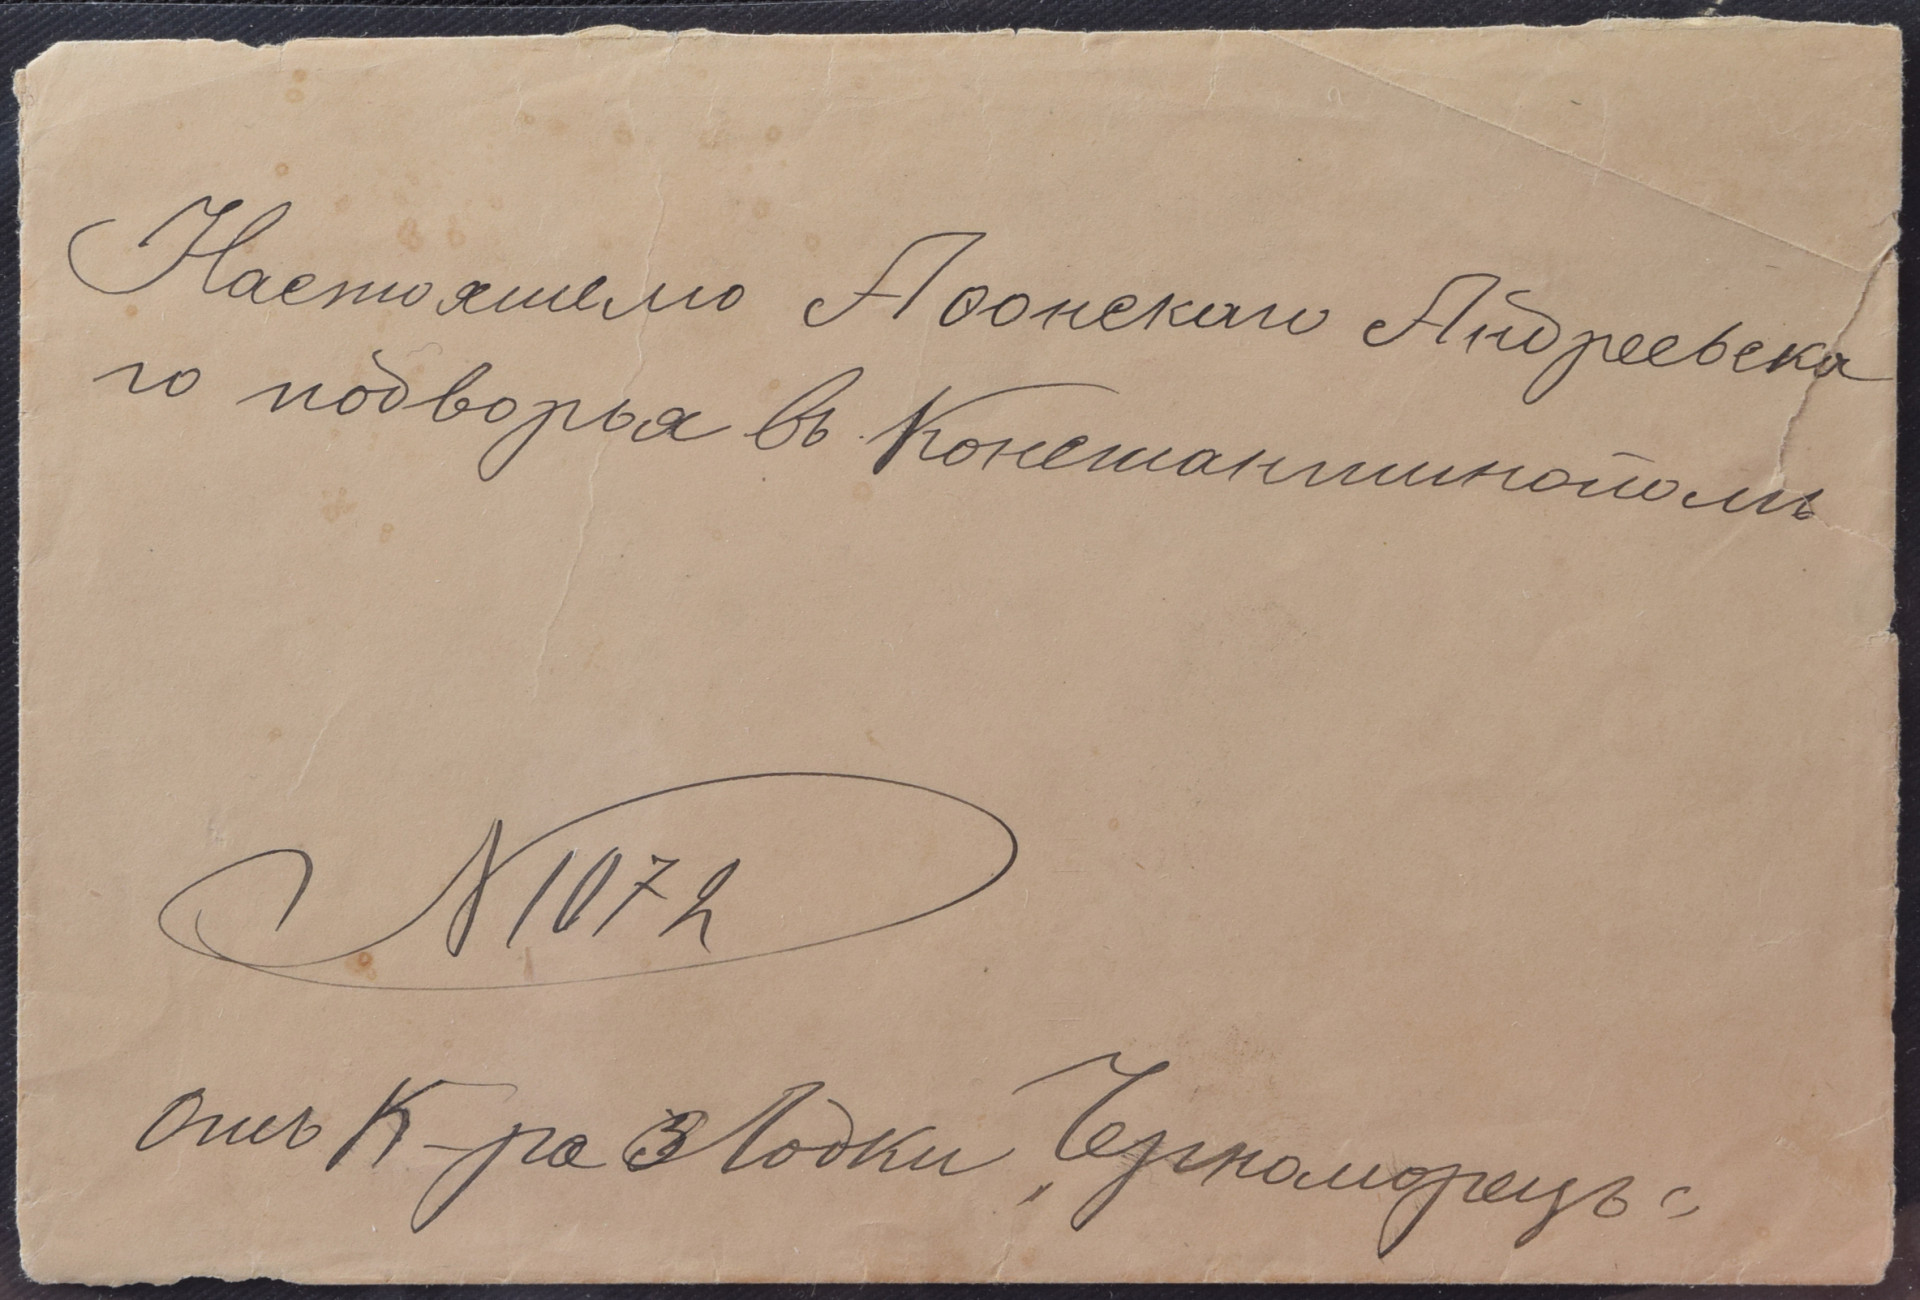 Настоящему Афонскаго Андреевска
го подворья въ Константинополь
N 1072
Отъ К-ра З Лодки „Черноморецъ“